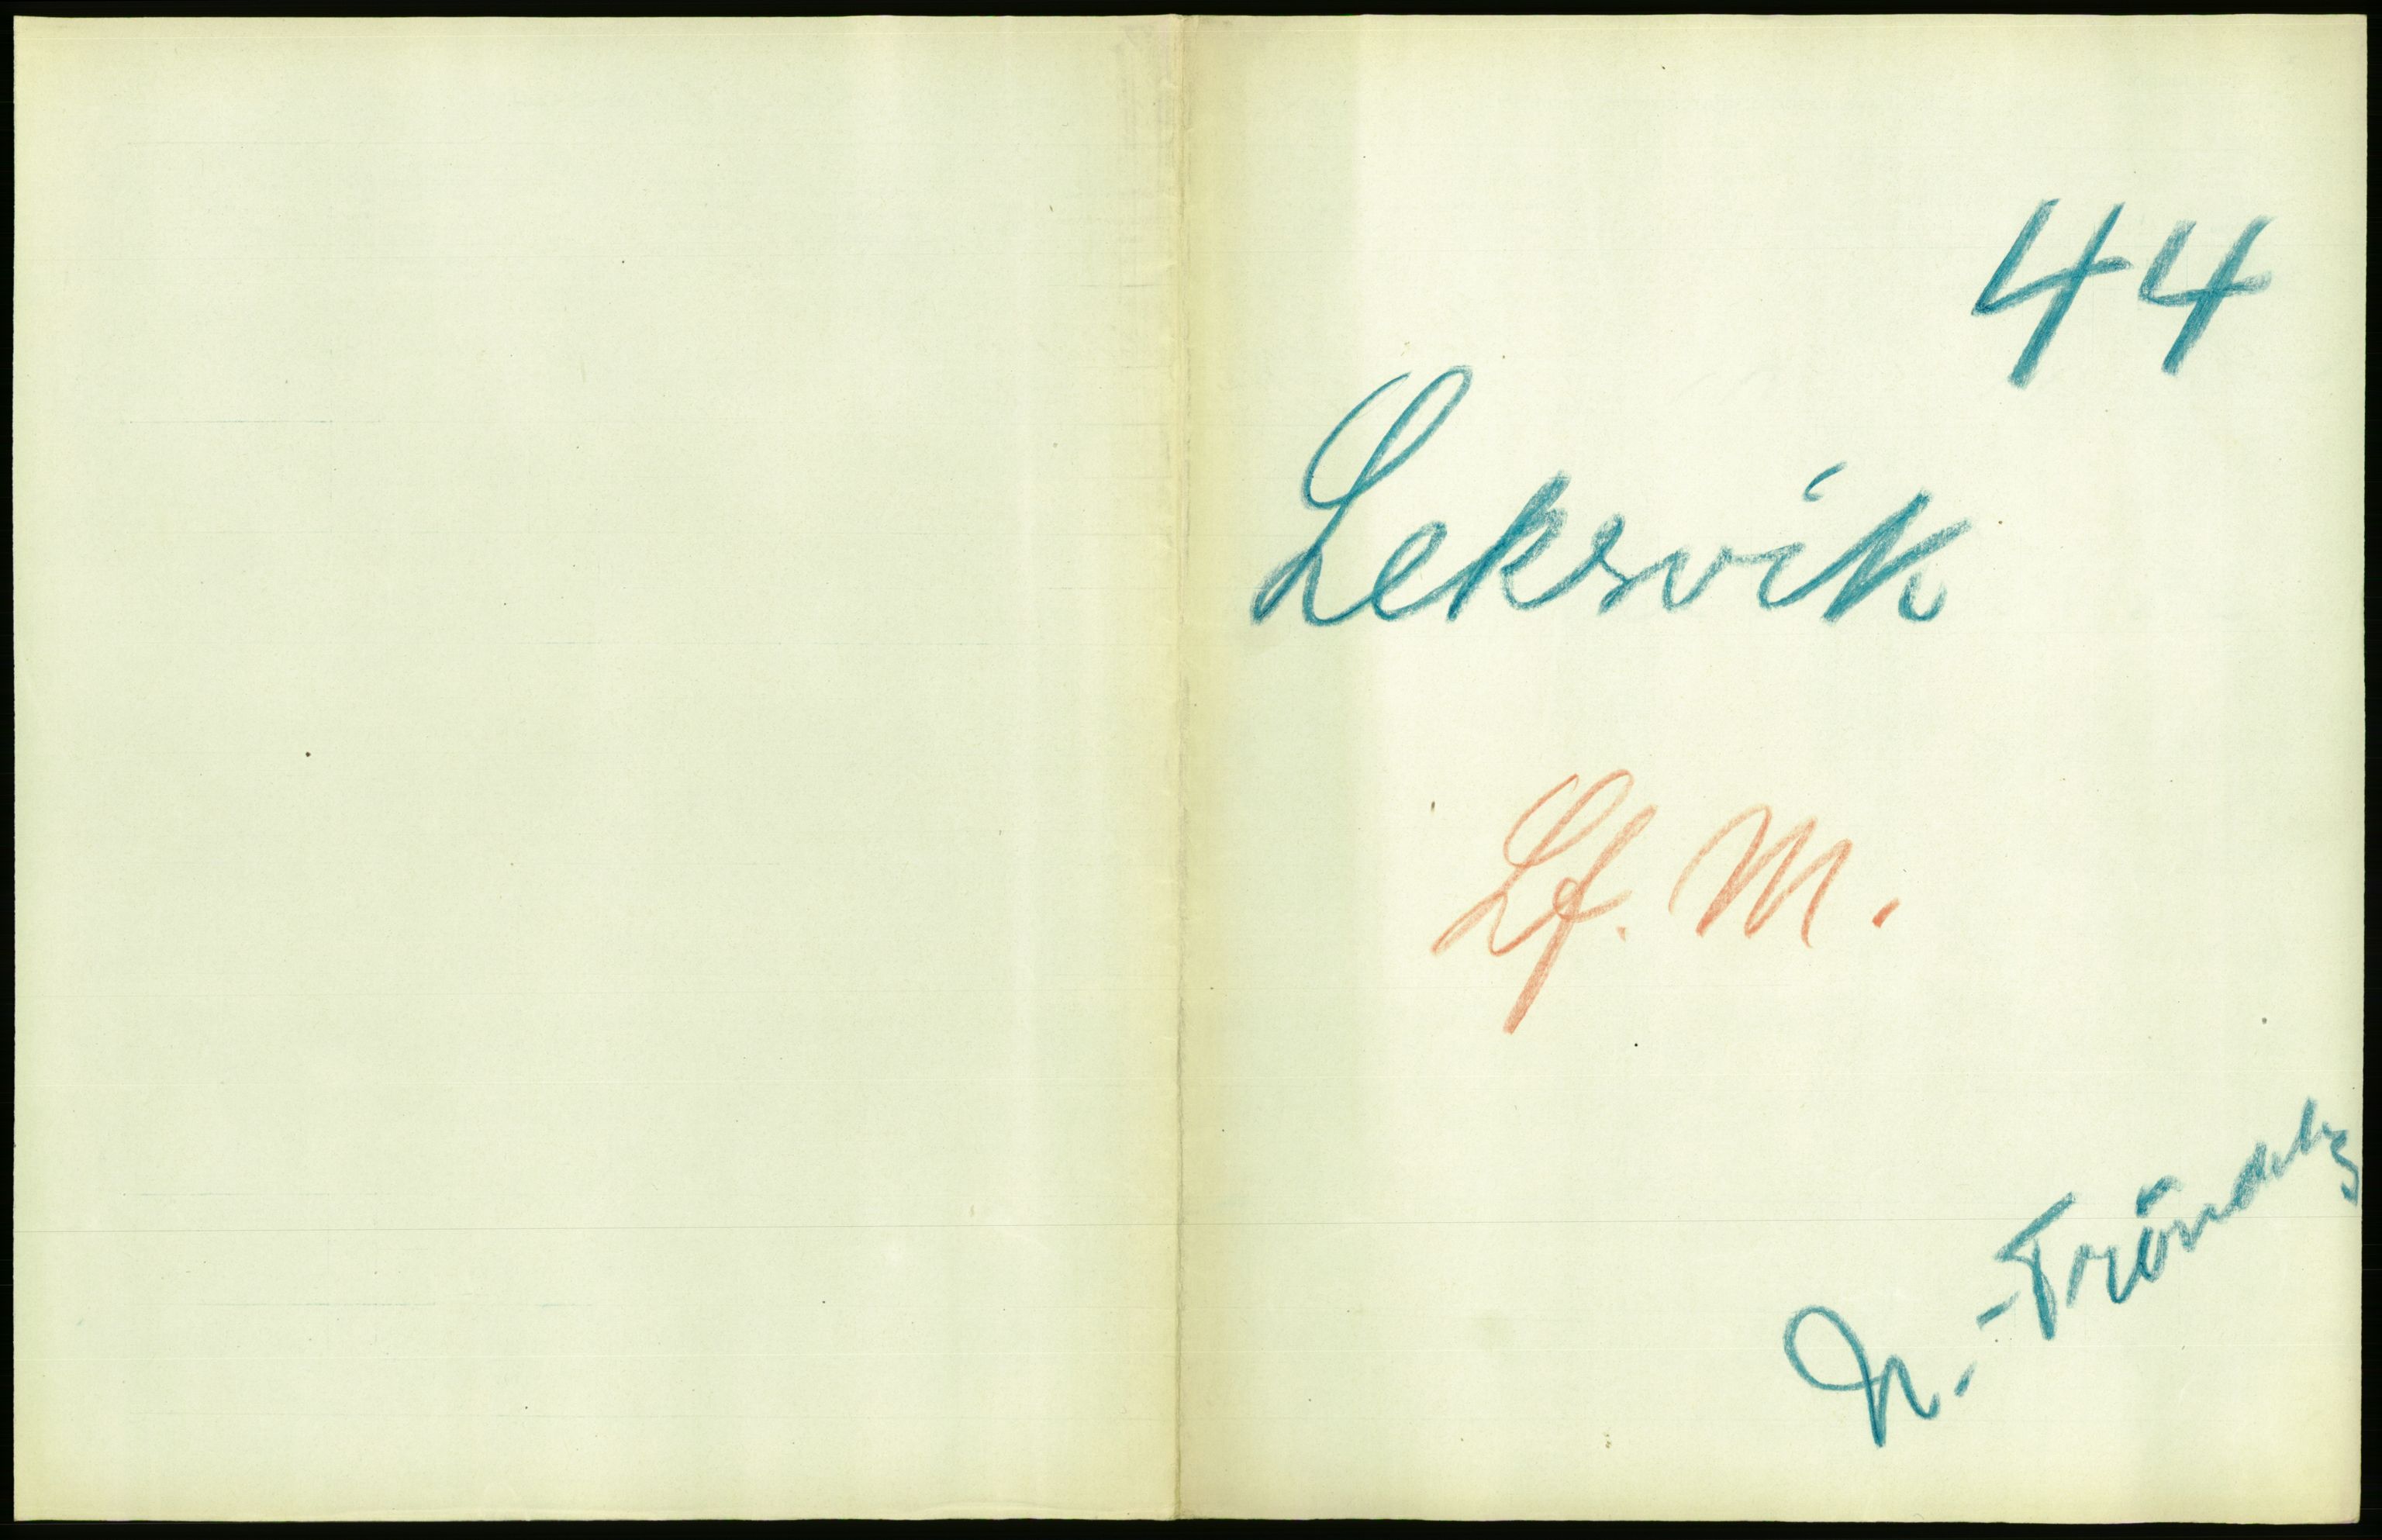 44
Leksvik
Lf. M.
N.-Tröndelag